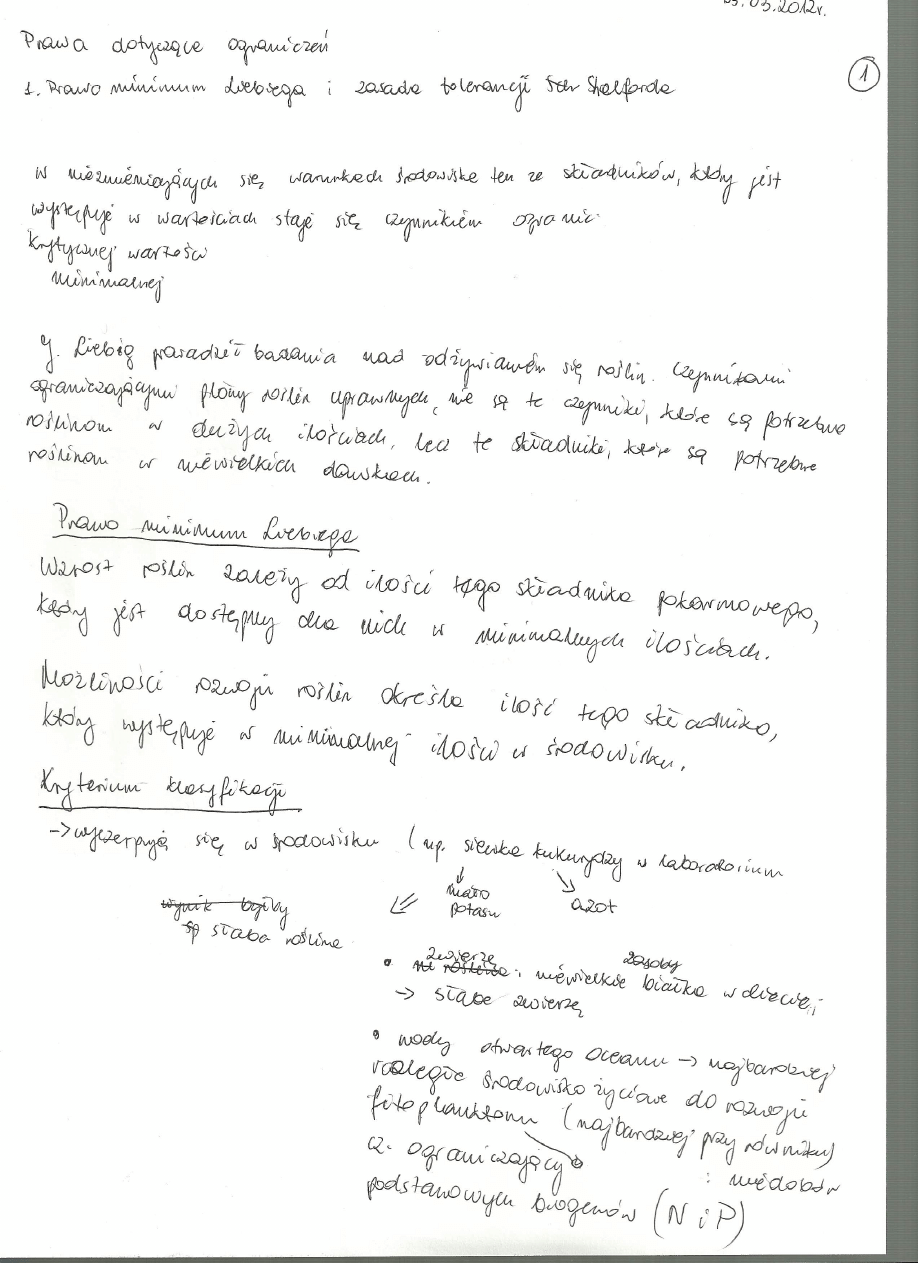 03.2012r.
Prawa dotyczące ograniczeń
1
1. Prawo minimum Liebiega i zasada tolerancji Shelforda
W niezmieniających się warunkach środowiska ten ze składników, który jest
występuje w wartościach staje się czynnikiem ogranic
krytycznej wartości
minimalnej
J. Liebig paradził badania nad odżywianiem się roślin. Czynnikami
ograniczającymi plony roślin uprawnych, nie są te czynniki, które są potrzebne
roślinom w dużych ilościach, lecz te składniki, które są potrzebne
roślinom w niewielkich dawkach.
Prawo minimum Liebiega
Wzrost roślin zależy od ilości tego składnika pokarmowego,
który jest dostępny dla nich w minimalnych ilościach.
Możliwości rozwoju roślin określa ilość tego składnika,
który występuje w minimalnej ilości w środowisku.
Kryterium klasyfikacji
-> wyczerpuje się w środowisku (np. siewka kukurydzy w laboratorium
mało
potasu
azot
słaba roślina
• zwierzę: niewielkie zasoby białka w diecie
-> słabe zwierzę
• wody otwartego oceanu -> najbardziej
rozległe środowisko życiowe do rozwoju
fitoplanktonu (najbardziej przy równiku)
cz. ograniczający : niedobór
podstawowych biogenów (N i P)